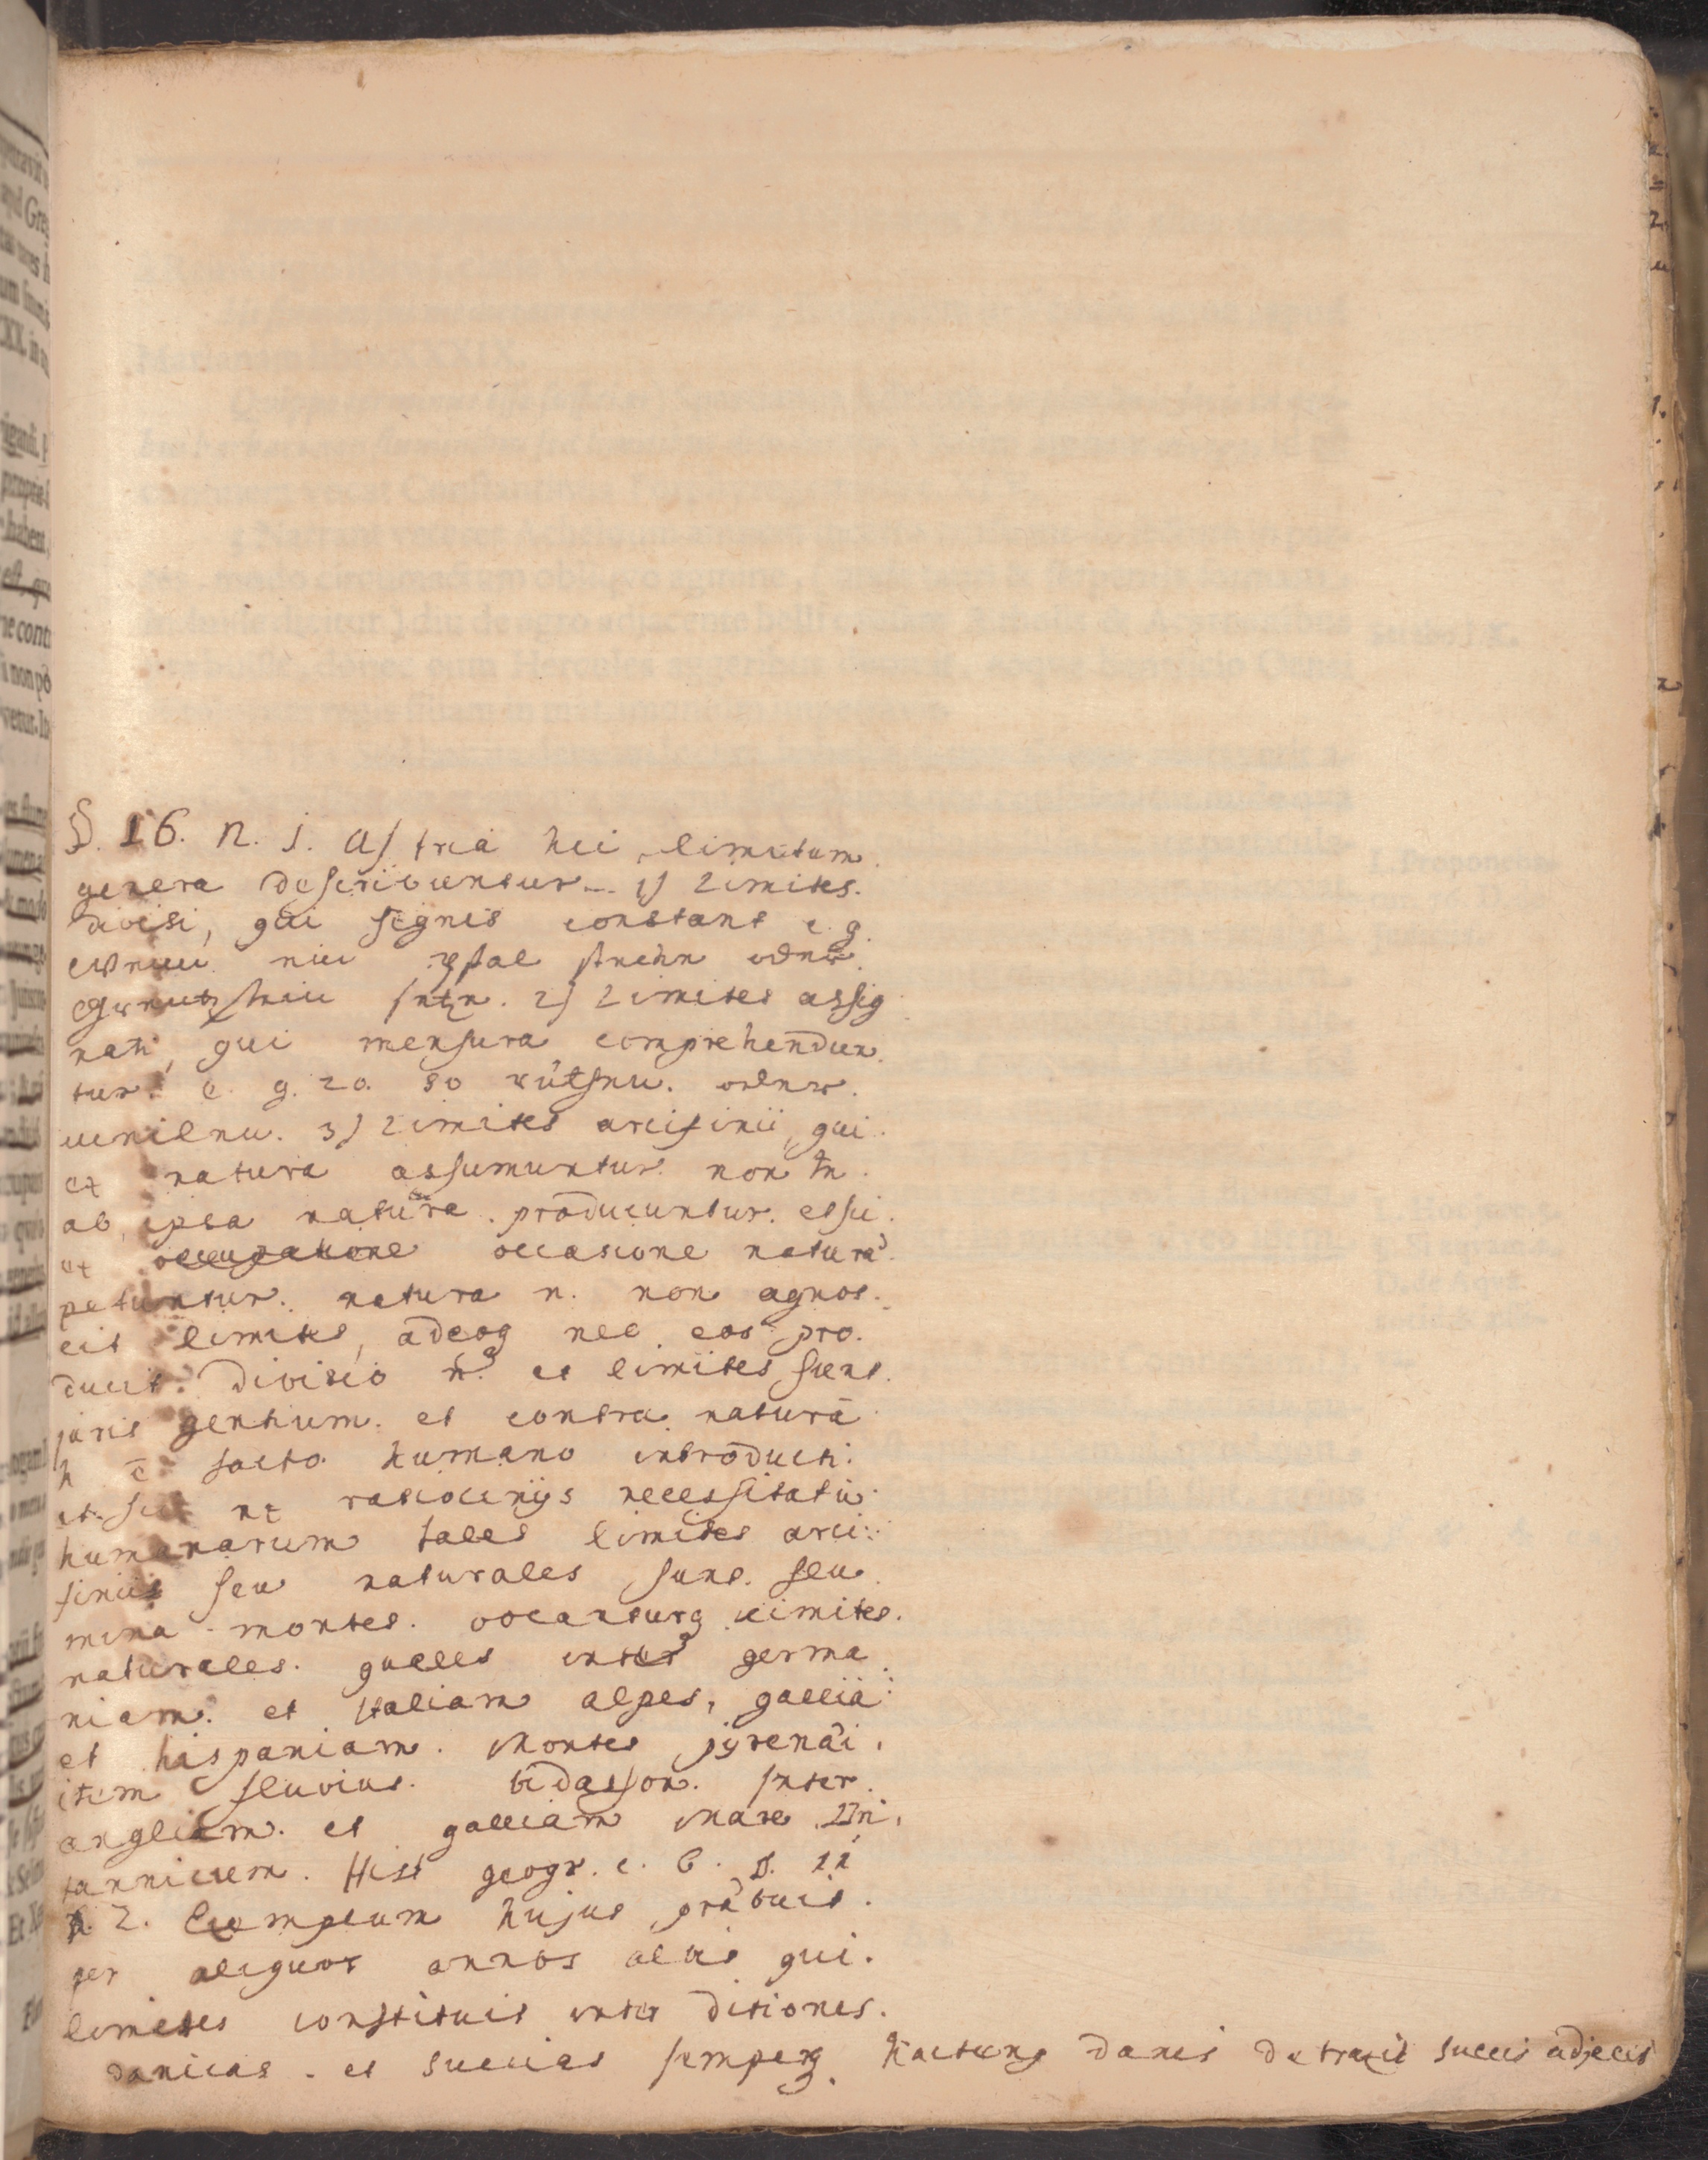 §. 16. n. 1. tria hic limitum
genera describuntur 1) Limites
divisi, qui signis constant e. g.
2) Limites assig
nati, qui mensura comprehendun
tur. e. g. 20. 30
3) Limites arcifinii, qui
ex natura assumuntur non tn
ab ipsa natura producuntur. etsi
ex occasione natura
petuntur. natura n. non agnos
cit limites, adeoq nec eos pro
ducit. Divisio n. et limites sunt
juris gentium. et contra natura
h ē facto humano introducti.
ratiociniis necessitatu
humanarum tales limites arci
finii seu naturales sunt. flu
mina montes. vocanturq limites
naturales. quales inter germa
niam. et Italiam alpes, galliā
et hispaniam. Montes pyrenæi.
item fluvius. Bidasson. Inter
angliam. et galliam Mare Bri
tannicum. Hist geogr. c. 6. §. 11
n. 2. Exemplum hujus præbuit
per aliquot annos albis qui
limites constituit inter ditiones
danicas. et suecicas semperq. hactenq danis detraxit suecis adjecit